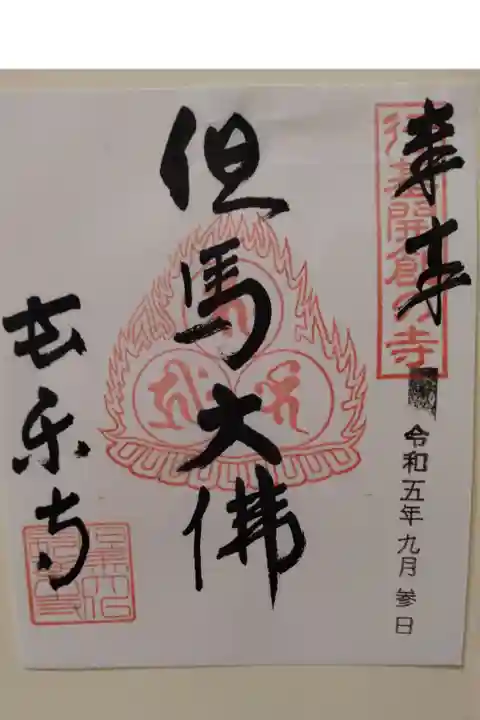 奉拝
行基開創の寺
令和五年九月参日
但馬大佛
長楽寺